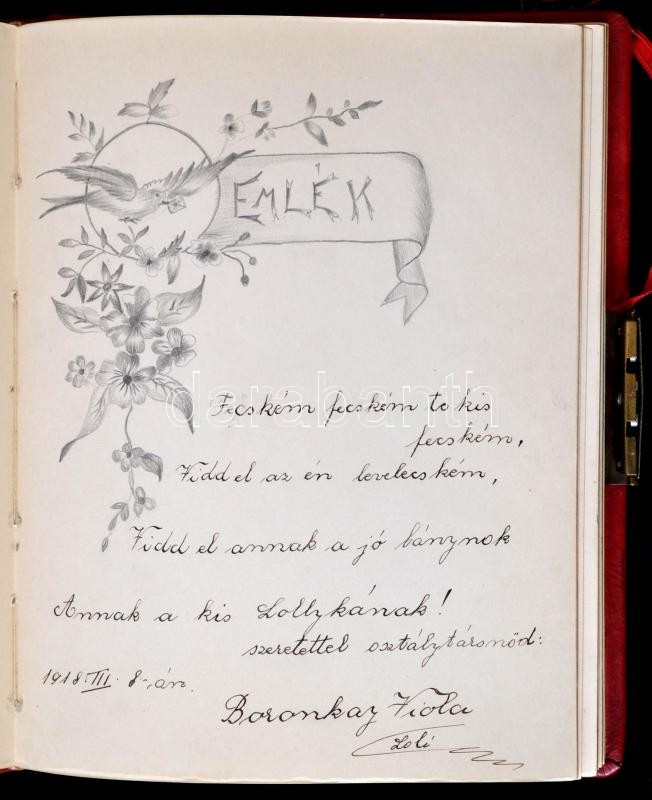 EMLÉK
Fecském fecském te kis
fecském,
Vidd el az én levelecském,
Vidd el annak a jó lánynok
Annak a kis Lollykának!
szeretettel osztálytársnőd:
1918. III. 8-án.
Boronkay Viola
Loli
darabanth